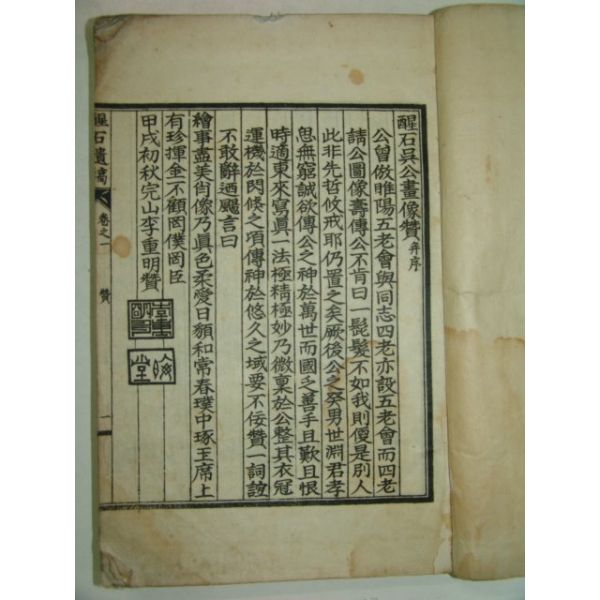 醒石吳公畫像贊 幷序
公曾倣睢陽五老會與同志四老亦設五老會而四老
請公圖像壽傳公不肯曰一髭髮不如我則便是別人
此非先哲攸戒耶仍置之矣厥後公之癸男世淵君孝
思無窮誠欲傳公之神於萬世而國乏善手且歎且恨
時適東來寫眞一法極精極妙乃微稟於公整其衣冠
運機於閃倏之頃傳神於悠久之域要不佞贊一詞誼
不敢辭迺颺言曰
繪事盡美肖像乃眞色柔愛日顏和常春璞中琢玉席上
有珍揮金不顧罔僕罔臣
甲戌初秋完山李重明贊
李重明印
晦堂
醒石遺稿
卷之一
贊
一